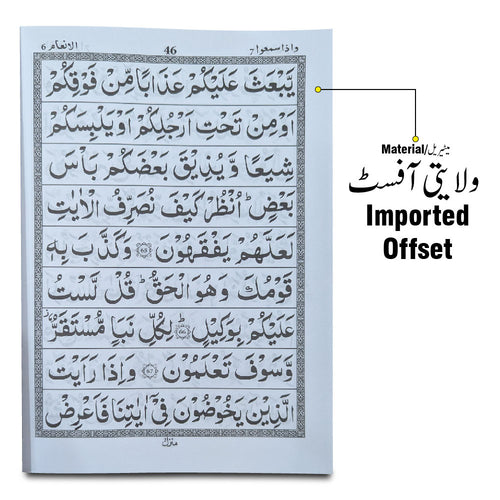 الانعام ٦
46
واذا سمعوا ٧
يَّبْعَثَ عَلَيْكُمْ عَذَابًا مِّنْ فَوْقِكُمْ
اَوْ مِنْ تَحْتِ اَرْجُلِكُمْ اَوْ يَلْبِسَكُمْ
شِيَعًا وَّ يُذِيْقَ بَعْضَكُمْ بَاْسَ
بَعْضٍ ؕ اُنْظُرْ كَيْفَ نُصَرِّفُ الْاٰيٰتِ
لَعَلَّهُمْ يَفْقَهُوْنَ ﴿65﴾ وَ كَذَّبَ بِهٖ
قَوْمُكَ وَ هُوَ الْحَقُّ ؕ قُلْ لَّسْتُ
عَلَيْكُمْ بِوَكِيْلٍ ﴿66﴾ لِكُلِّ نَبَاٍ مُّسْتَقَرٌّ ز
وَّ سَوْفَ تَعْلَمُوْنَ ﴿67﴾ وَ اِذَا رَاَيْتَ
الَّذِيْنَ يَخُوْضُوْنَ فِيْۤ اٰيٰتِنَا فَاَعْرِضْ
منزل
Material/میٹیریل
ولایتی آفسٹ
Imported
Offset